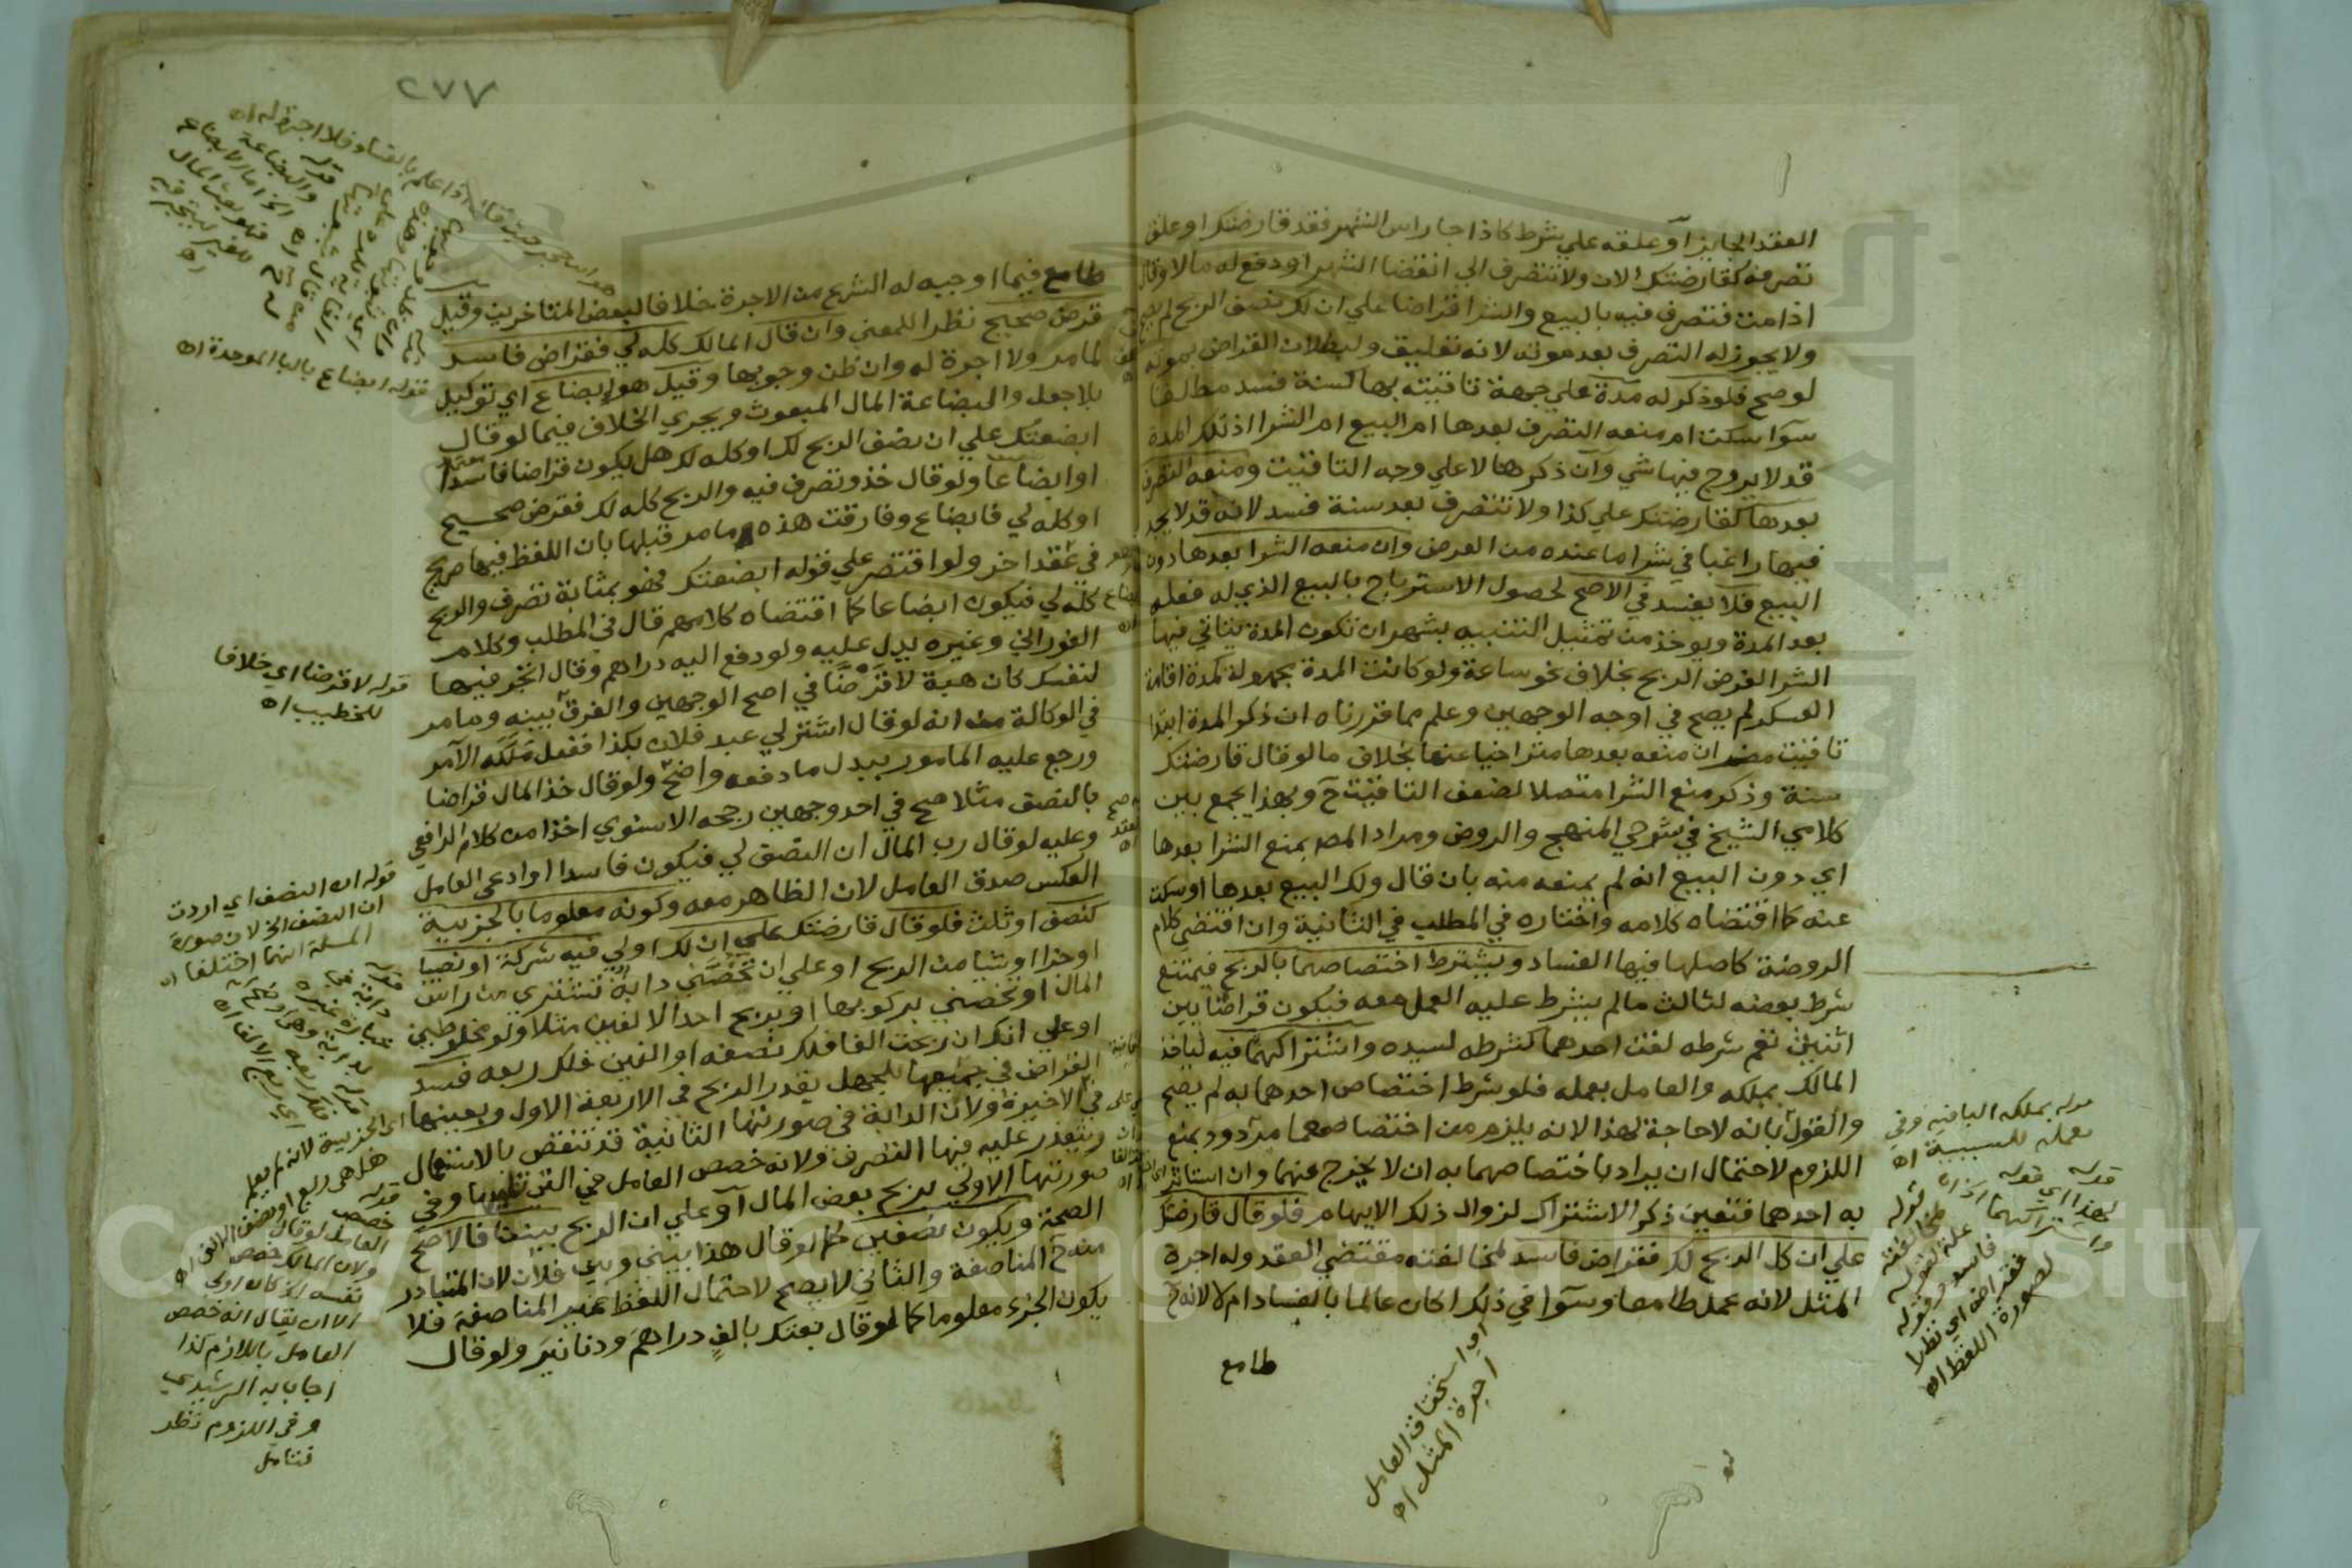 العقد الجايز أو علقه علي شرط كاذا جا راس الشهر فقد قارضتك او علق
تصرفه كقارضتك الان ولا تتصرف الي انقضا الشهر او دفع له مالا وقال
اذا مت فتصرف فيه بالبيع والشرا قراضا علي ان لك نصف الربح لم يصح
ولا يجوز له التصرف بعد موته لانه تعليق ولبطلان القراض بموته
لو صح فلو ذكر له مدة علي جهة تاقيته بها كسنة فسد مطلقا
سوآ سكت ام منعه التصرف بعدها ام البيع ام الشرا اذ تلك المدة
قد لا يروج فيها شي وان ذكرها لا علي وجه التاقيت ومنعه التصرف
بعدها كقارضتك علي كذا ولا تتصرف بعد سنة فسد لانه قد لا يجد
فيها راغبا في شرا ما عنده من العرض وان منعه الشرا بعدها دون
البيع فلا يفسد في الاصح لحصول الاسترباح بالبيع الذي له فعله
بعد المدة ويوخذ من تمثيل التنبيه بشهر ان تكون المدة يتاتي فيها
الشرا لغرض الربح بخلاف نحو ساعة ولو كانت المدة مجهولة كمدة اقامة
العسكر لم يصح في اوجه الوجهين وعلم مما قررناه ان ذكر المدة ابتدا
تاقيت مضر ان منعه بعدها متراخيا عنها بخلاف ما لو قال قارضتك
سنة وذكر منع الشرا متصلا لضعف التاقيت ح وبهذا يجمع بين
كلامي الشيخ في شرحي المنهج والروض ومراد المص بمنع الشرا بعدها
اي دون البيع انه لم يمنعه منه بان قال ولك البيع بعدها او سكت
عنه كما اقتضاه كلامه واختاره في المطلب في الثانية وان اقتضي كلام
الروضة كاصلها فيها الفساد ويشترط اختصاصهما بالربح فيمتنع
شرط بعضه لثالث ما لم يشرط عليه العمل معه فيكون قراضا بين
اثنين نعم شرطه لقن احدهما كشرطه لسيده واشتراكهما فيه لياخذ
المالك بملكه والعامل بعمله فلو شرط اختصاص احدهما به لم يصح
والقول بانه لا حاجة لهذا لانه يلزم من اختصاصهما مردود بمنع
اللزوم لاحتمال ان يراد باختصاصهما به ان لا يخرج عنهما وان استاثر
به احدهما فتعين ذكر الاشتراك لزوال ذلك الايهام فلو قال قارضتك
علي ان كل الربح لك فقراض فاسد لمخالفته مقتضي العقد وله اجرة
المثل لانه عمل طامعا وسوآ في ذلك اكان عالما بالفساد ام لا لانه ح
طامع
اي استحقاق العامل
اجرة المثل اه
قوله بملكه البا فيه وفي
بعمله للسببية اه
قوله
لهذا اي قوله
واشتراكهما الخ اه
قوله
لمخالفته
علة لقوله
فاسد وقوله
فقراض اي نظرا
لصورة اللفظ اه
٢٧٧
طامع فيما اوجبه له الشرع من الاجرة خلافا لبعض المتاخرين وقيل
قرض صحيح نظرا للمعني وان قال المالك كله لي فقراض فاسد
لما مر ولا اجرة له وان ظن وجوبها وقيل هو ابضاع اي توكيل
بلا جعل والبضاعة المال المبعوث ويجري الخلاف فيما لو قال
ابضعتك علي ان نصف الربح لك او كله لك هل يكون قراضا فاسدا
او ابضاعا ولو قال خذه وتصرف فيه والربح كله لك فقرض صحيح
او كله لي فابضاع وفارقت هذه ما مر قبلها بان اللفظ فيها صريح
في عقد اخر ولو اقتصر علي قوله ابضعتك فهو بمثابة تصرف والربح
كله لي فيكون ابضاعا كما اقتضاه كلامهم قال في المطلب وكلام
الفوراني وغيره يدل عليه ولو دفع اليه دراهم وقال اتجر فيها
لنفسك كان هبة لا قرضا في اصح الوجهين والفرق بينه وما مر
في الوكالة من انه لو قال اشتر لي عبد فلان بكذا ففعل ملكه الآمر
ورجع عليه المامور ببدل ما دفعه واضح ولو قال خذ المال قراضا
بالنصف مثلا صح في احد وجهين رجحه الاسنوي اخذا من كلام الرافعي
وعليه لو قال رب المال ان النصف لي فيكون فاسدا او ادعي العامل
العكس صدق العامل لان الظاهر معه وكونه معلوما بالجزيية
كنصف او ثلث فلو قال قارضتك علي ان لك او لي فيه شركة او نصيبا
او جزا او شيا من الربح او علي ان تخصني دابة تشتري من راس
المال او تخصني بركوبها او بربح احد الالفين مثلا ولو مخلوطين
او علي انك ان ربحت الفا فلك نصفه او الفين فلك ربعه فسد
القراض في جميعها للجهل بقدر الربح في الاربعة الاول وبعينها
في الاخيرة ولان الدابة في صورتها الثانية قد تنقص بالاستعمال
ويتعذر عليه فيها التصرف ولانه خصص العامل في التي تليها وفي
صورتها الاولي بربح بعض المال أو علي ان الربح بيننا فالاصح
الصحة ويكون نصفين كما لو قال هذا بيني وبين فلان لان المتبادر
منه ح المناصفة والثاني لا يصح لاحتمال اللفظ غير المناصفة فلا
يكون الجزء معلوما كما لو قال بعتك بالف دراهم ودنانير ولو قال
قوله ابضاع بالبا الموحدة اه
قوله لا قرضا اي خلافا
للخطيب اه
قوله ان النصف اي اردت
ان النصف الخ لان صورة
المسلة انهما اختلفا اه
اي الجزيية لانه لم يعلم
هل هي ربع او نصف الالفين اه
قوله
خصص
العامل لو قال
ولان المالك خصص
نفسه الخ كان اولي
الا ان يقال انه خصص
العامل باللازم كذا
اجاب به الرشيدي
وفي اللزوم نظر
فتامل